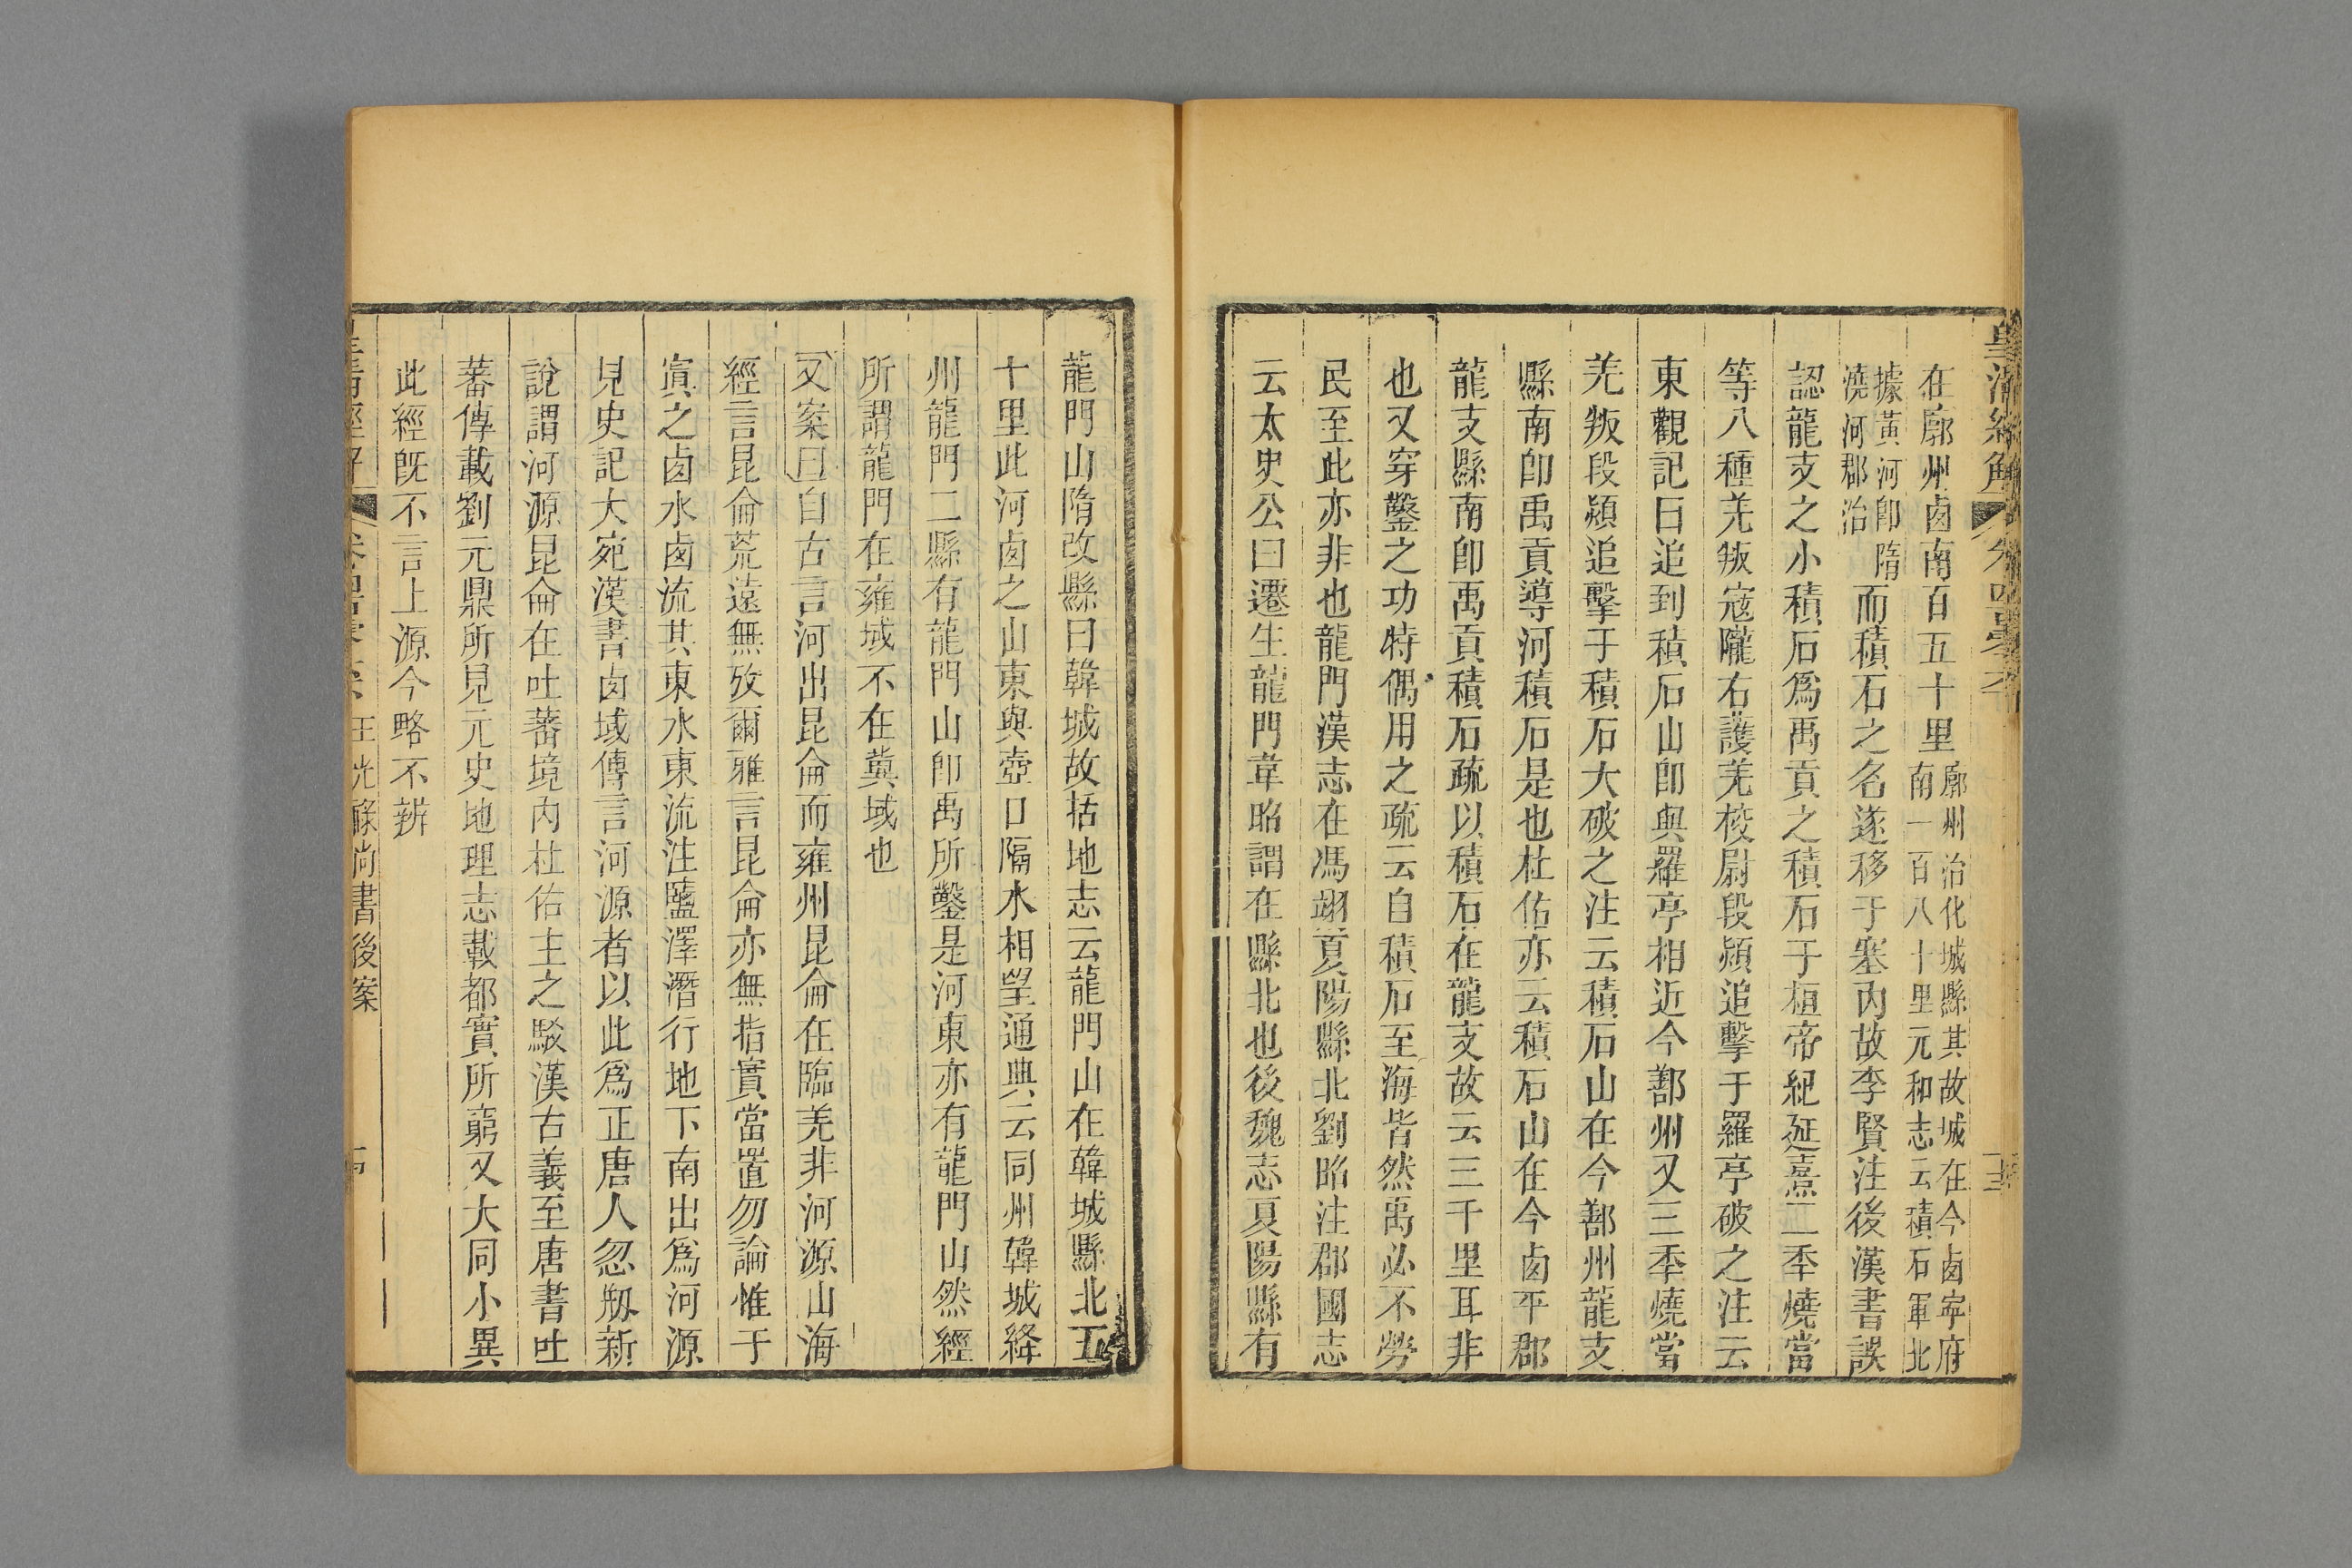 皇清經解
在廓州㢴南百五十里廓州治化城縣其故城在今㢴寧府南一百八十里元和志云積石軍北
據黃河卽隋澆河郡治而積石之名遂移于塞內故李賢注後漢書誤
認龍支之小積石爲禹貢之積石于桓帝紀延熹二秊燒當
等八種羌叛寇隴右護羌校尉段熲追擊于羅亭破之注云
東觀記曰追到積石山卽與羅亭相近今鄯州又三秊燒當
羌叛段熲追擊于積石大破之注云積石山在今鄯州龍支
縣南卽禹貢導河積石是也杜佑亦云積石山在今㢴平郡
龍支縣南卽禹貢積石疏以積石在龍支故云三千里耳非
也又穿鑿之功特偶用之疏云自積石至海皆然禹必不勞
民至此亦非也龍門漢志在馮翊夏陽縣北劉昭注郡國志
云太史公曰遷生龍門韋昭謂在縣北也後魏志夏陽縣有
龍門山隋改縣曰韓城故括地志云龍門山在韓城縣北五
十里此河㢴之山東與壺口隔水相望通典云同州韓城絳
州龍門二縣有龍門山卽禹所鑿是河東亦有龍門山然經
所謂龍門在雍域不在冀域也
又案曰自古言河出昆侖而雍州昆侖在臨羌非河源山海
經言昆侖荒遠無攷爾雅言昆侖亦無指實當置勿論惟于
寘之㢴水㢴流其東水東流注鹽澤潛行地下南出爲河源
見史記大宛漢書㢴域傳言河源者以此爲正唐人忽剏新
說謂河源昆侖在吐蕃境內杜佑主之駁漢古義至唐書吐
蕃傳載劉元鼎所見元史地理志載都實所窮又大同小異
此經旣不言上源今略不辨
王光祿尚書後案